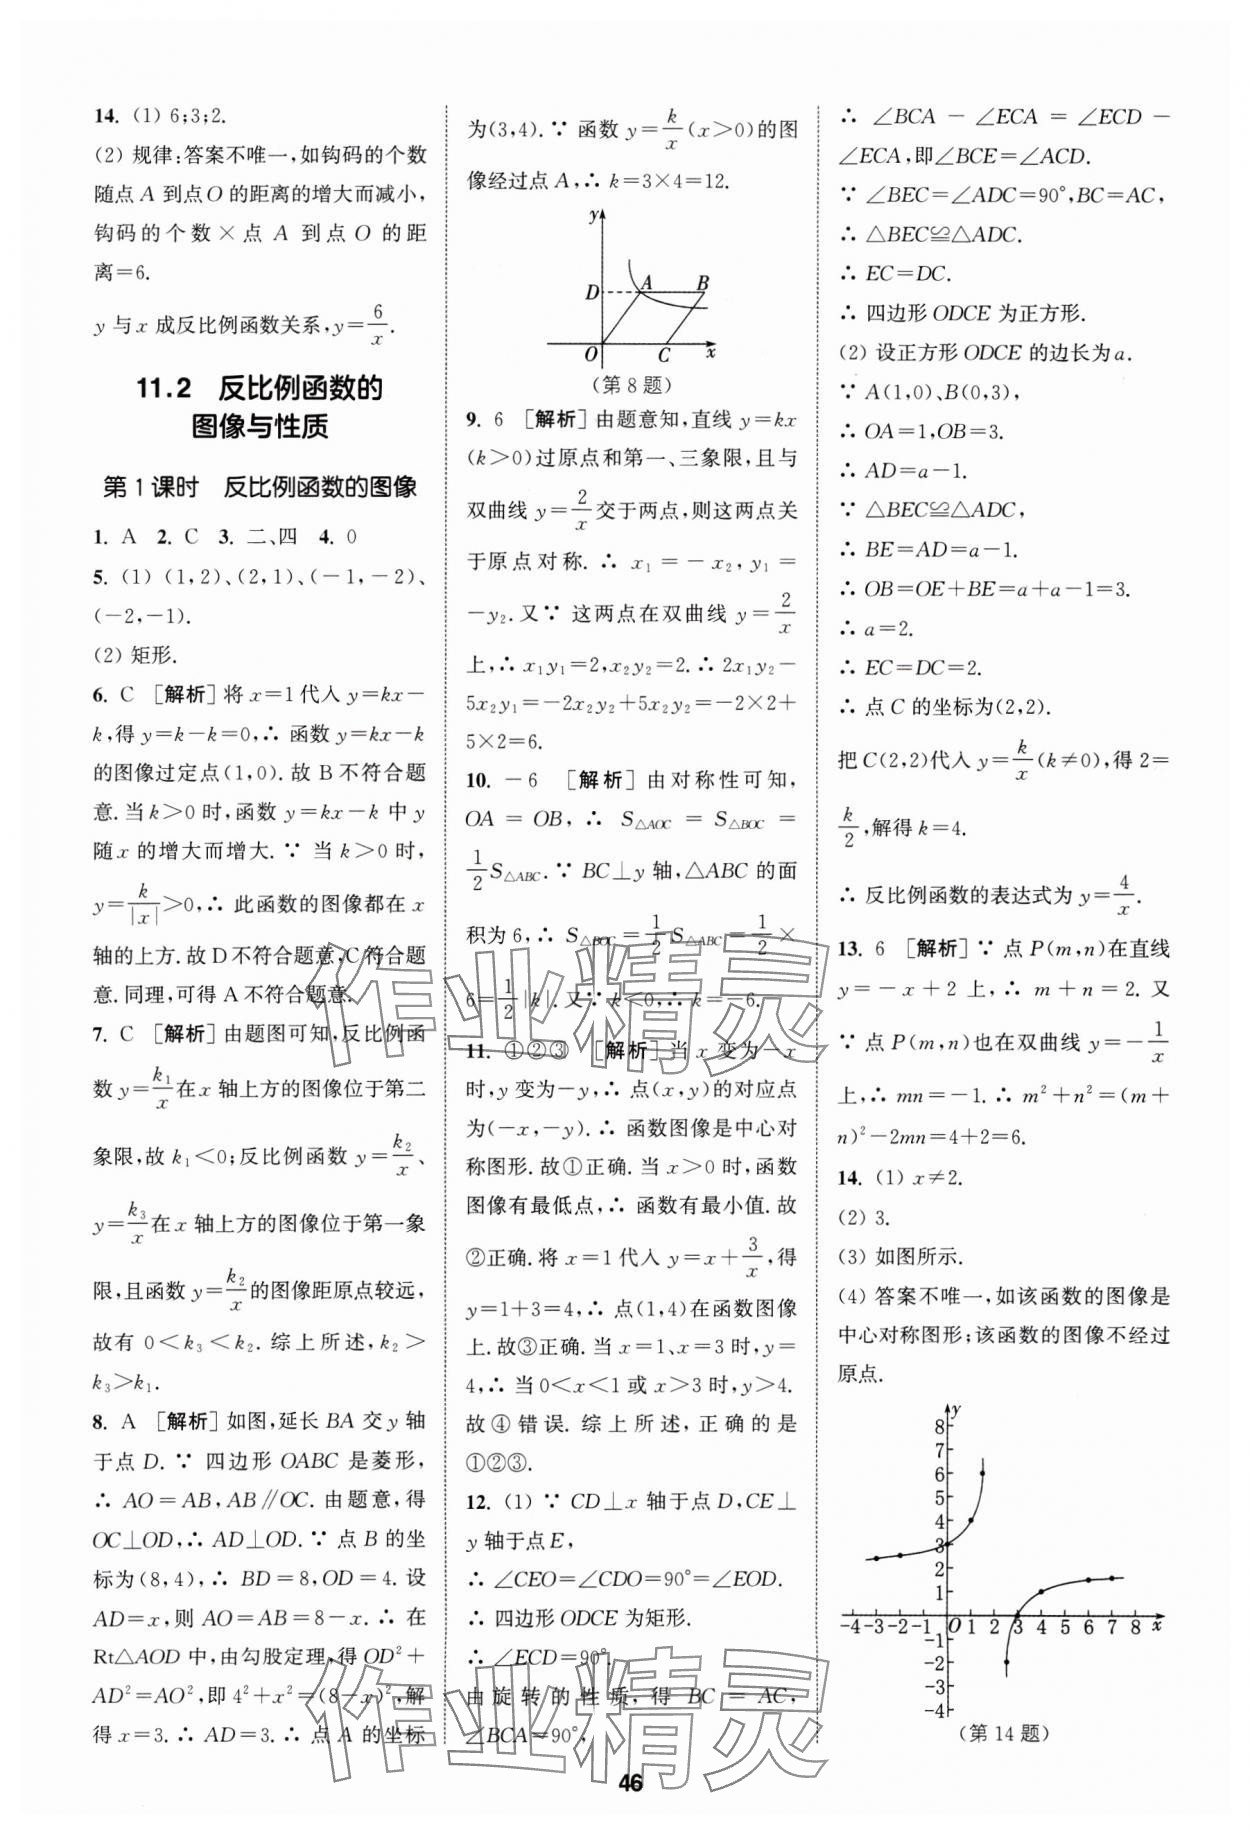 14. (1) 6;3;2.
(2) 规律:答案不唯一,如钩码的个数
随点 A 到点O 的距离的增大而减小,
钩码的个数×点 A 到点 O 的距
离=6.
y 与 x 成反比例函数关系,y=6/x.
11.2 反比例函数的
图像与性质
第1课时 反比例函数的图像
1. A 2. C 3. 二、四 4. 0
5. (1) (1,2)、(2,1)、(-1,-2)、
(-2,-1).
(2) 矩形.
6. C [解析]将 x=1代入 y=kx-
k,得 y=k-k=0,∴ 函数 y=kx-k
的图像过定点(1,0). 故 B不符合题
意. 当 k>0 时,函数 y=kx-k 中 y
随 x 的增大而增大. ∵ 当 k>0 时,
y=k/|x|>0,∴ 此函数的图像都在 x
轴的上方. 故 D不符合题意,C符合题
意. 同理,可得 A不符合题意.
7. C [解析]由题图可知,反比例函
数 y=k₁/x在 x 轴上方的图像位于第二
象限,故 k₁<0;反比例函数 y=k₂/x、
y=k₃/x在 x 轴上方的图像位于第一象
限,且函数 y=k₂/x的图像距原点较远,
故有 0<k₃<k₂. 综上所述,k₂>
k₃>k₁.
8. A [解析]如图,延长 BA 交 y 轴
于点 D. ∵ 四边形 OABC 是菱形,
∴ AO=AB,AB∥OC. 由题意,得
OC⊥OD,∴ AD⊥OD. ∵ 点 B 的坐
标为(8,4),∴ BD=8,OD=4. 设
AD=x,则 AO=AB=8-x. ∴ 在
Rt△AOD 中,由勾股定理,得 OD²+
AD²=AO²,即 4²+x²=(8-x)²,解
得 x=3. ∴ AD=3. ∴ 点 A 的坐标
为(3,4). ∵ 函数 y=k/x(x>0)的图
像经过点 A,∴ k=3×4=12.
y
D A B
O C x
(第8题)
9. 6 [解析]由题意知,直线 y=kx
(k>0)过原点和第一、三象限,且与
双曲线 y=2/x交于两点,则这两点关
于原点对称. ∴ x₁=-x₂,y₁=
-y₂. 又∵ 这两点在双曲线 y=2/x
上,∴ x₁y₁=2,x₂y₂=2. ∴ 2x₁y₂-
5x₂y₁=-2x₂y₂+5x₂y₂=-2×2+
5×2=6.
10. -6 [解析]由对称性可知,
OA=OB,∴ S△AOC=S△BOC=
1/2 S△ABC. ∵ BC⊥y 轴,△ABC 的面
积为 6,∴ S△BOC=1/2 S△ABC=1/2×
6=1/2|k|. 又∵ k<0,∴ k=-6.
11. ①②③ [解析]当 x 变为-x
时,y 变为-y,∴ 点(x,y)的对应点
为(-x,-y). ∴ 函数图像是中心对
称图形. 故①正确. 当 x>0 时,函数
图像有最低点,∴ 函数有最小值. 故
②正确. 将 x=1代入 y=x+3/x,得
y=1+3=4,∴ 点(1,4)在函数图像
上. 故③正确. 当 x=1、x=3 时,y=
4,∴ 当 0<x<1 或 x>3 时,y>4.
故④错误. 综上所述,正确的是
①②③.
12. (1) ∵ CD⊥x 轴于点 D,CE⊥
y 轴于点 E,
∴ ∠CEO=∠CDO=90°=∠EOD.
∴ 四边形 ODCE 为矩形.
∴ ∠ECD=90°.
由旋转的性质,得 BC=AC,
∠BCA=90°,
∴ ∠BCA-∠ECA=∠ECD-
∠ECA,即∠BCE=∠ACD.
∵ ∠BEC=∠ADC=90°,BC=AC,
∴ △BEC≌△ADC.
∴ EC=DC.
∴ 四边形 ODCE 为正方形.
(2) 设正方形 ODCE 的边长为 a.
∵ A(1,0)、B(0,3),
∴ OA=1,OB=3.
∴ AD=a-1.
∵ △BEC≌△ADC,
∴ BE=AD=a-1.
∴ OB=OE+BE=a+a-1=3.
∴ a=2.
∴ EC=DC=2.
∴ 点 C 的坐标为(2,2).
把 C(2,2)代入 y=k/x(k≠0),得 2=
k/2,解得 k=4.
∴ 反比例函数的表达式为 y=4/x.
13. 6 [解析]∵ 点 P(m,n)在直线
y=-x+2 上,∴ m+n=2. 又
∵ 点 P(m,n)也在双曲线 y=-1/x
上,∴ mn=-1. ∴ m²+n²=(m+
n)²-2mn=4+2=6.
14. (1) x≠2.
(2) 3.
(3) 如图所示.
(4) 答案不唯一,如该函数的图像是
中心对称图形;该函数的图像不经过
原点.
y
8
7
6
5
4
3
2
1
-4-3-2-1 O 1 2 3 4 5 6 7 8 x
-1
-2
-3
-4
(第14题)
46
作业精灵
作业精灵